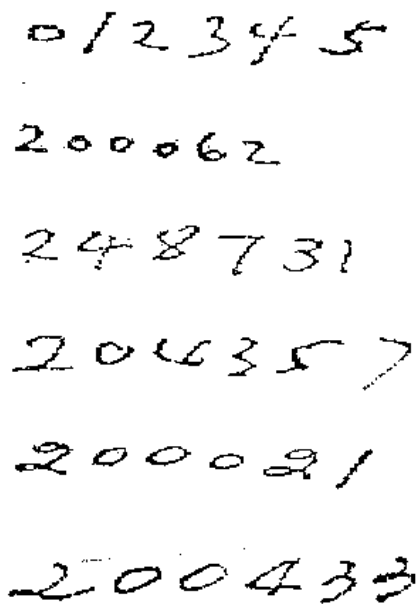 012345
200062
248731
204357
200021
200433